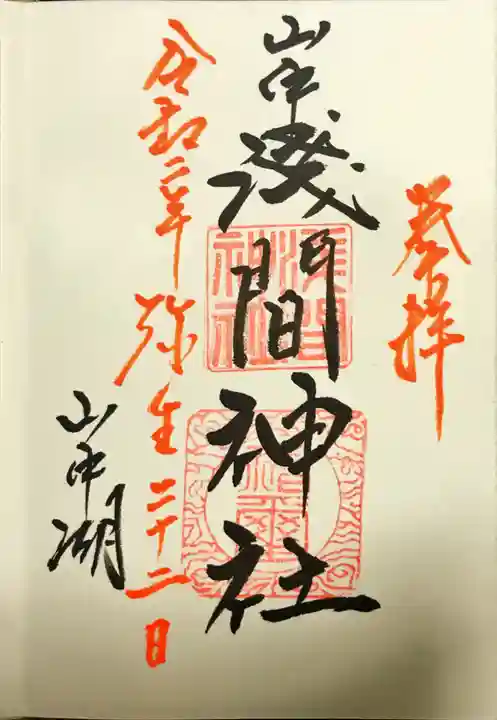 奉拝
山中
淺間神社
淺間
神社
山中湖
令和二年弥生二十二日